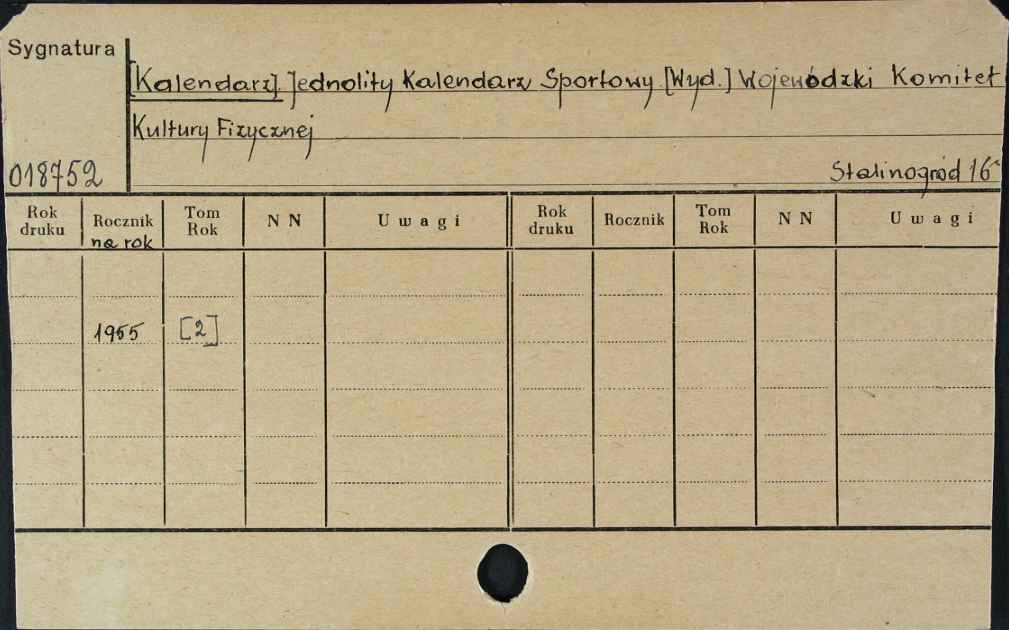 Sygnatura
[Kalendarz]. Jednolity Kalendarz Sportowy [Wyd.] Wojewódzki Komitet
Kultury Fizycznej
018752 Stalinogród 16°
Rok druku Rocznik na rok Tom Rok N N Uwagi Rok druku Rocznik Tom Rok N N Uwagi
1955 [2]